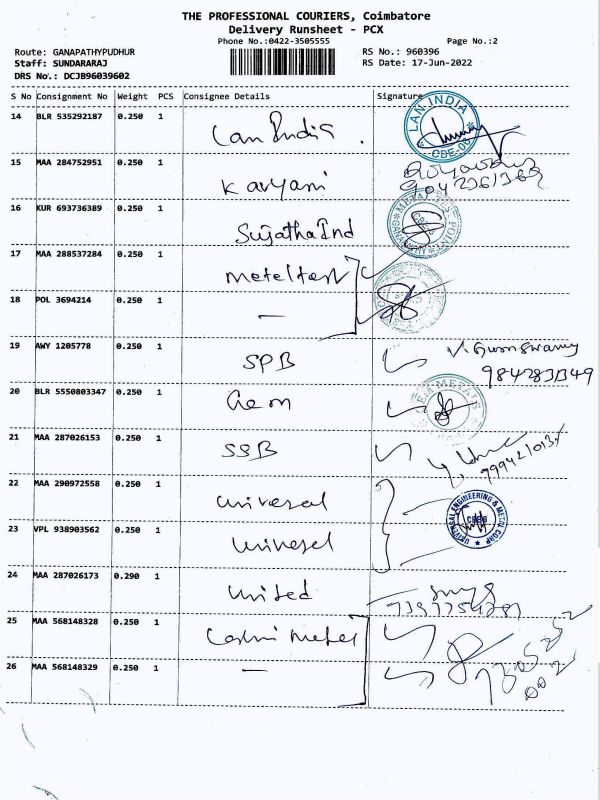 THE PROFESSIONAL COURIERS, Coimbatore
Delivery Runsheet - PCX
Phone No.:0422-3505555 Page No.:2
Route: GANAPATHYPUDHUR RS No.: 960396
Staff: SUNDARARAJ RS Date: 17-Jun-2022
DRS No.: DCJB96039602
S No Consignment No Weight PCS Consignee Details Signature
14 BLR 535292187 0.250 1 Lan India .
LAN INDIA
CBE-06
15 MAA 284752951 0.250 1 Kavyani
16 KUR 693736389 0.250 1 Sujatha Ind
17 MAA 288537284 0.250 1 Metel test
18 POL 3694214 0.250 1 —
19 AWY 1205778 0.250 1 SPB
20 BLR 5550803347 0.250 1 Aem
METALS
21 MAA 287026153 0.250 1 SSB
22 MAA 290972558 0.250 1 Universal
UNIVERSAL ENGINEERING & METAL CORP
23 VPL 938903562 0.250 1 Universel
24 MAA 287026173 0.290 1 United
25 MAA 568148328 0.250 1 Lashmi Metel
26 MAA 568148329 0.250 1 —